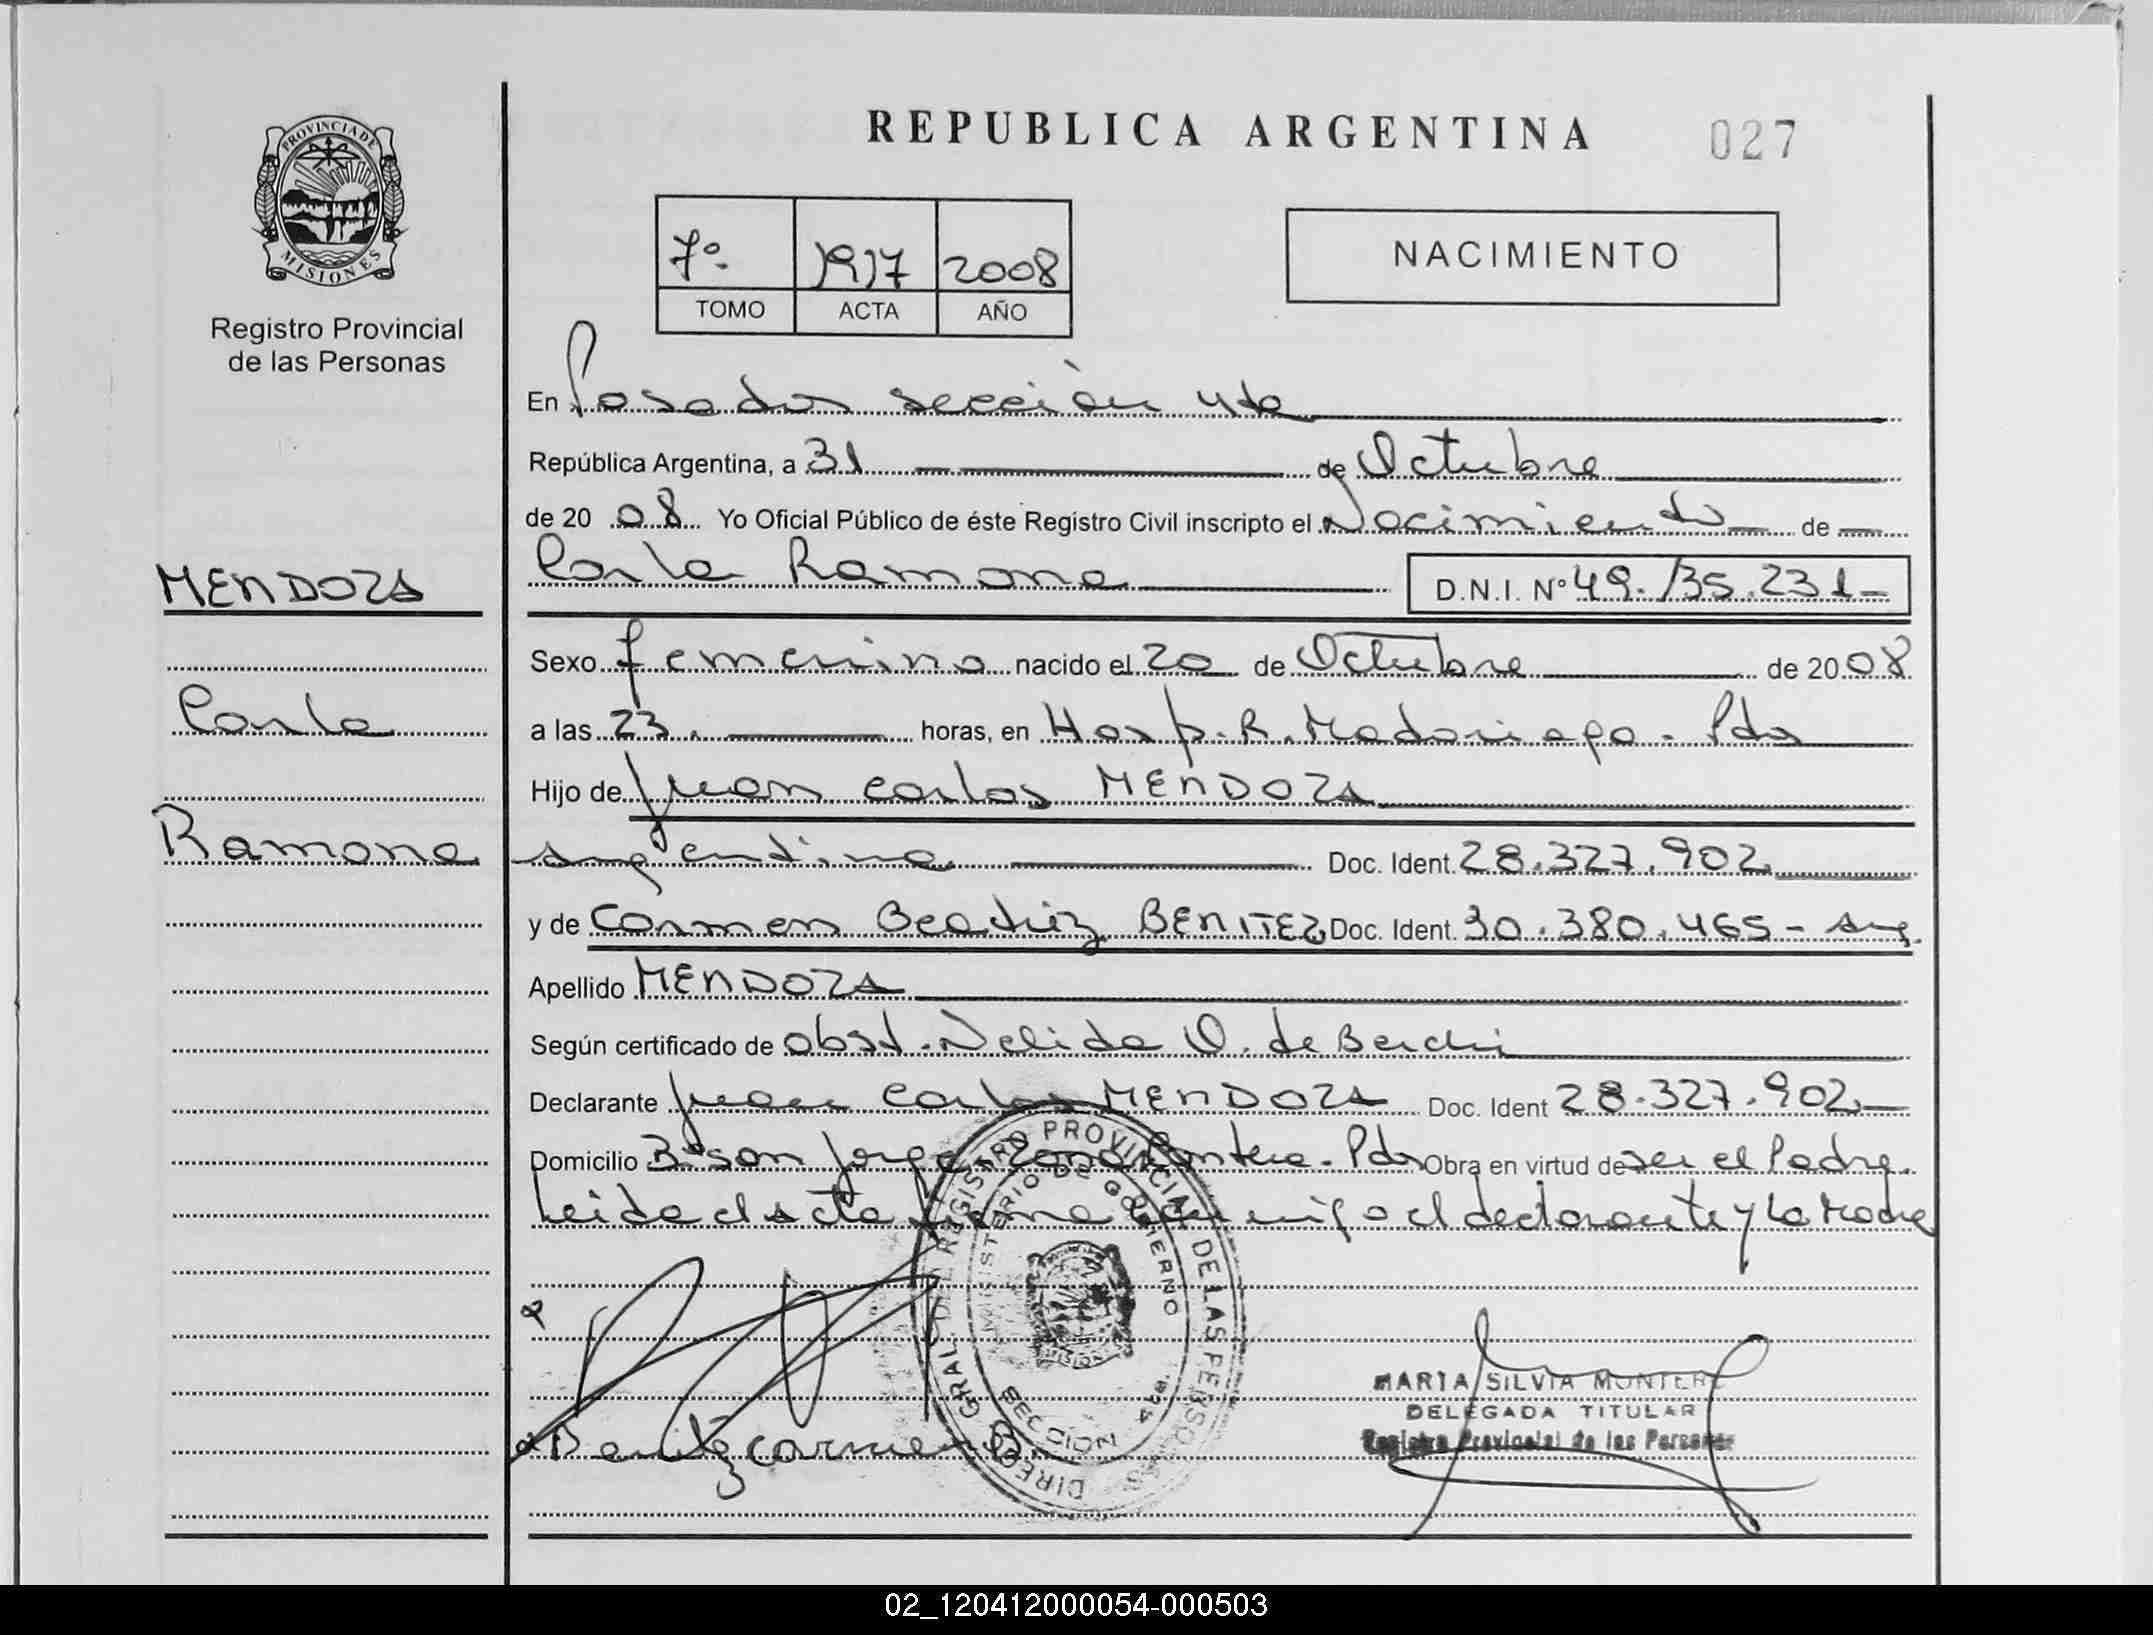 PROVINCIA DE
MISIONES
Registro Provincial
de las Personas
MENDOZA
Carla
Ramona
REPUBLICA ARGENTINA 027
7º 1917 2008
TOMO ACTA AÑO
NACIMIENTO
En Posadas sección 4ta
República Argentina, a 31 de Octubre
de 20 08 Yo Oficial Público de éste Registro Civil inscripto el Nacimiento de
Carla Ramona D.N.I. Nº 49.135.231
Sexo femenino nacido el 20 de Octubre de 20 08
a las 23. horas, en Hosp. R. Madariaga - Pdas
Hijo de Juan Carlos MENDOZA
argentino Doc. Ident. 28.327.902
y de Carmen Beatriz BENITEZ Doc. Ident. 30.380.465 - arg.
Apellido MENDOZA
Según certificado de obst. Nelida O. de Berchi
Declarante Juan Carlos MENDOZA Doc. Ident 28.327.902
Domicilio Bº San Jorge Pdas Obra en virtud de ser el Padre.
Leida el acta firma conmigo el declarante y la Madre
DIREC. GRAL. DEL REGISTRO PROVINCIAL DE LAS PERSONAS
MINISTERIO DE GOBIERNO
SECCION 4ta.
Benitez carmen B
MARIA SILVIA MONTERO
DELEGADA TITULAR
Registro Provincial de las Personas
02_120412000054-000503